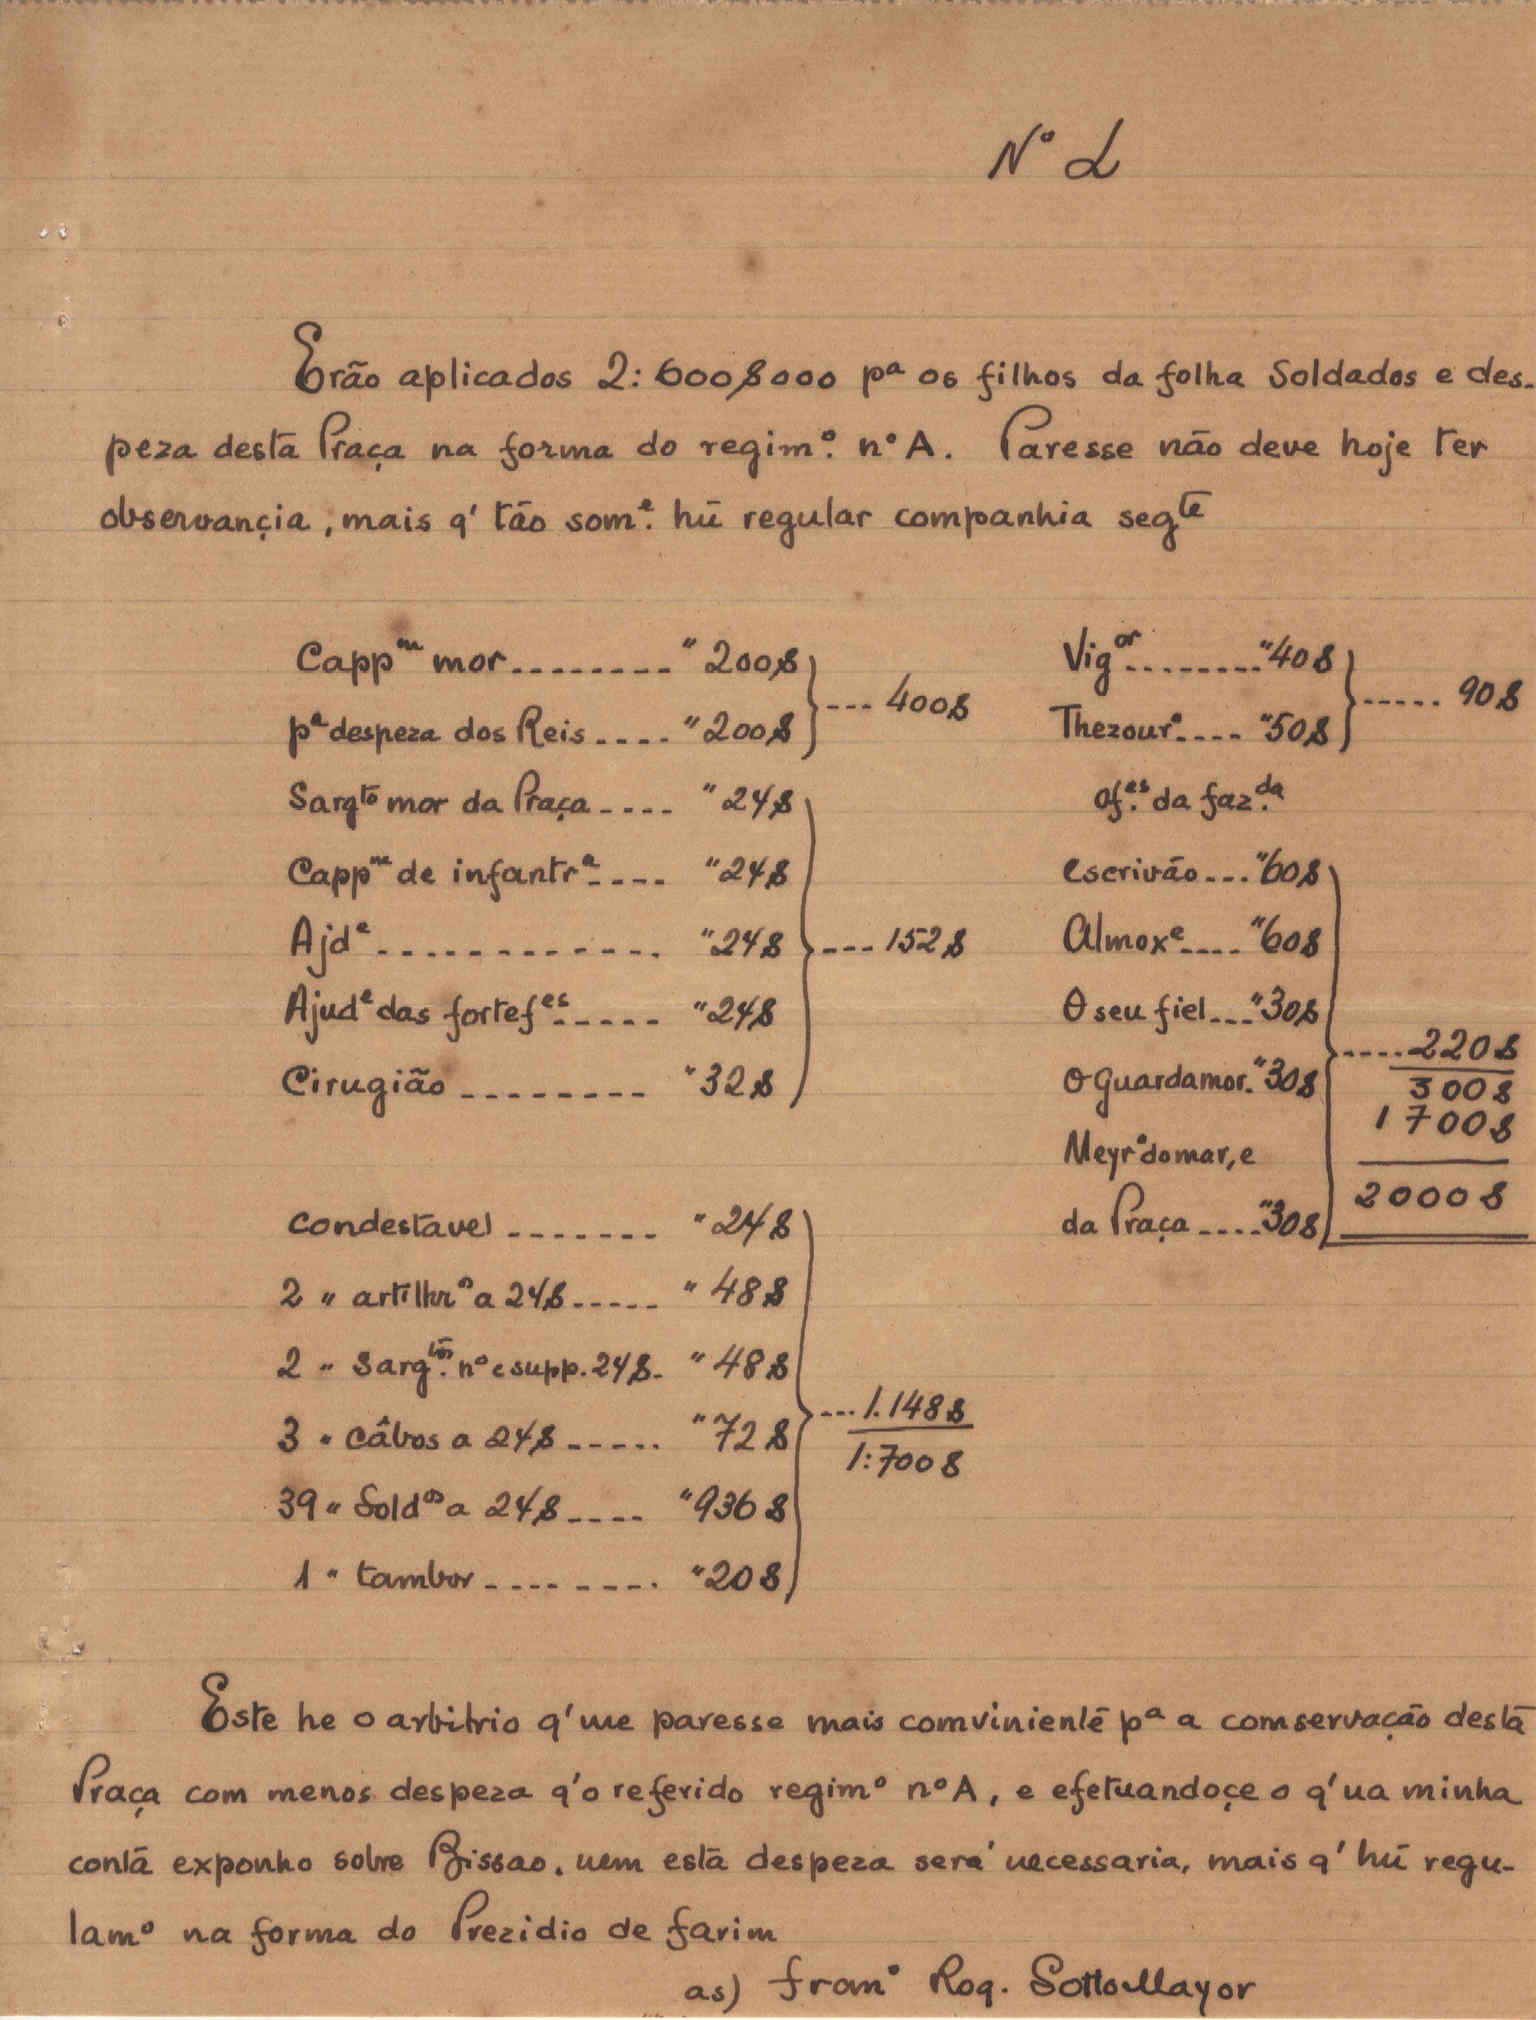 Nº L
Erão aplicados 2:600$000 pª os filhos da folha Soldados e des-
peza desta Praça na forma do regimº. nº A. Paresse não deve hoje ter
observançia, mais q' tão somᵉ. hũ regular companhia segᵗᵉ
Cappᵐ mor........ " 200$
pª despeza dos Reis .... " 200$
--- 400$
Sargᵗᵒ mor da Praça .... " 24$
Cappᵐ de infantrª.... " 24$
Ajdᵉ ............. " 24$
Ajudᵉ das fortefᵉˢ..... " 24$
Cirugião ........ " 32$
--- 152$
Condestavel ....... " 24$
2 " artilhrᵒˢ a 24$..... " 48$
2 " Sargᵗᵒˢ. nº e supp. 24$. " 48$
3 " Câbos a 24$ ..... " 72$
39 " Soldᵒˢ a 24$ .... " 936$
1 " tambor ........ " 20$
--- 1.148$
1:700$
Vigᵒʳ........ " 40$
Thezourº.... " 50$
..... 90$
Ofᵉˢ. da fazᵈᵃ.
Escrivão ... " 60$
Almoxᵉ.... " 60$
O seu fiel ... " 30$
O guardamor. " 30$
Meyrº do mar, e
da Praça .... " 30$
..... 220$
300$
1700$
2000$
Este he o arbitrio q' me paresse mais comvinientē pª a comservação destā
Praça com menos despeza q'o referido regimº nº A, e efetuandoçe o q' ua minha
contā exponho sobre Bissao, nem estā despeza será necessaria, mais q' hũ regu-
lamº na forma do Prezidio de farim
as) Franº Roq. SottoMayor